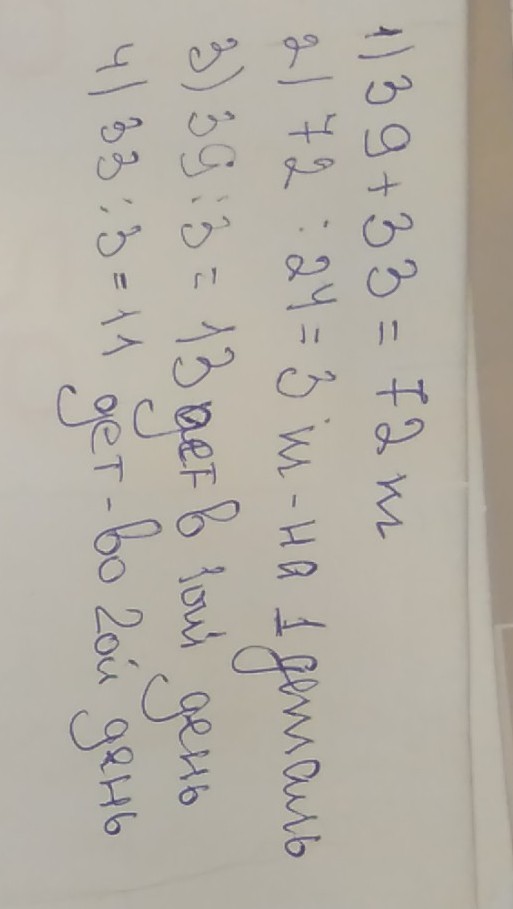 1) 39 + 33 = 72 т
2) 72 : 24 = 3 т - на 1 деталь
3) 39 : 3 = 13 дет в 1ой день
4) 33 : 3 = 11 дет - во 2ой день